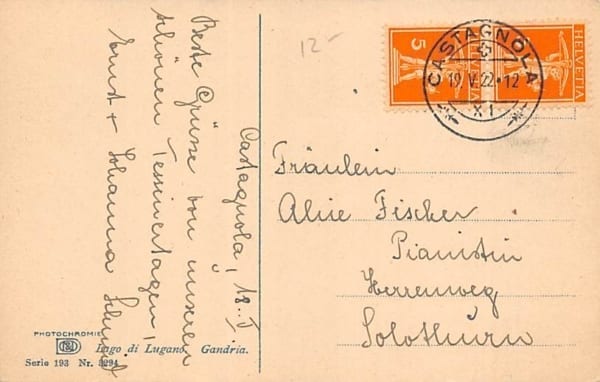 12-
Castagnola, 18. V
Beste Grüsse von unseren
schönen Tessinertagen,
Ernst + Johanna
5
HELVETIA
HELVETIA
CASTAGNOLA
19.V.22.12
XI
Fräulein
Alice Fischer
Pianistin
Herrenweg
Solothurn
PHOTOCHROMIE
Lago di Lugano. Gandria.
Serie 193 Nr. 3294